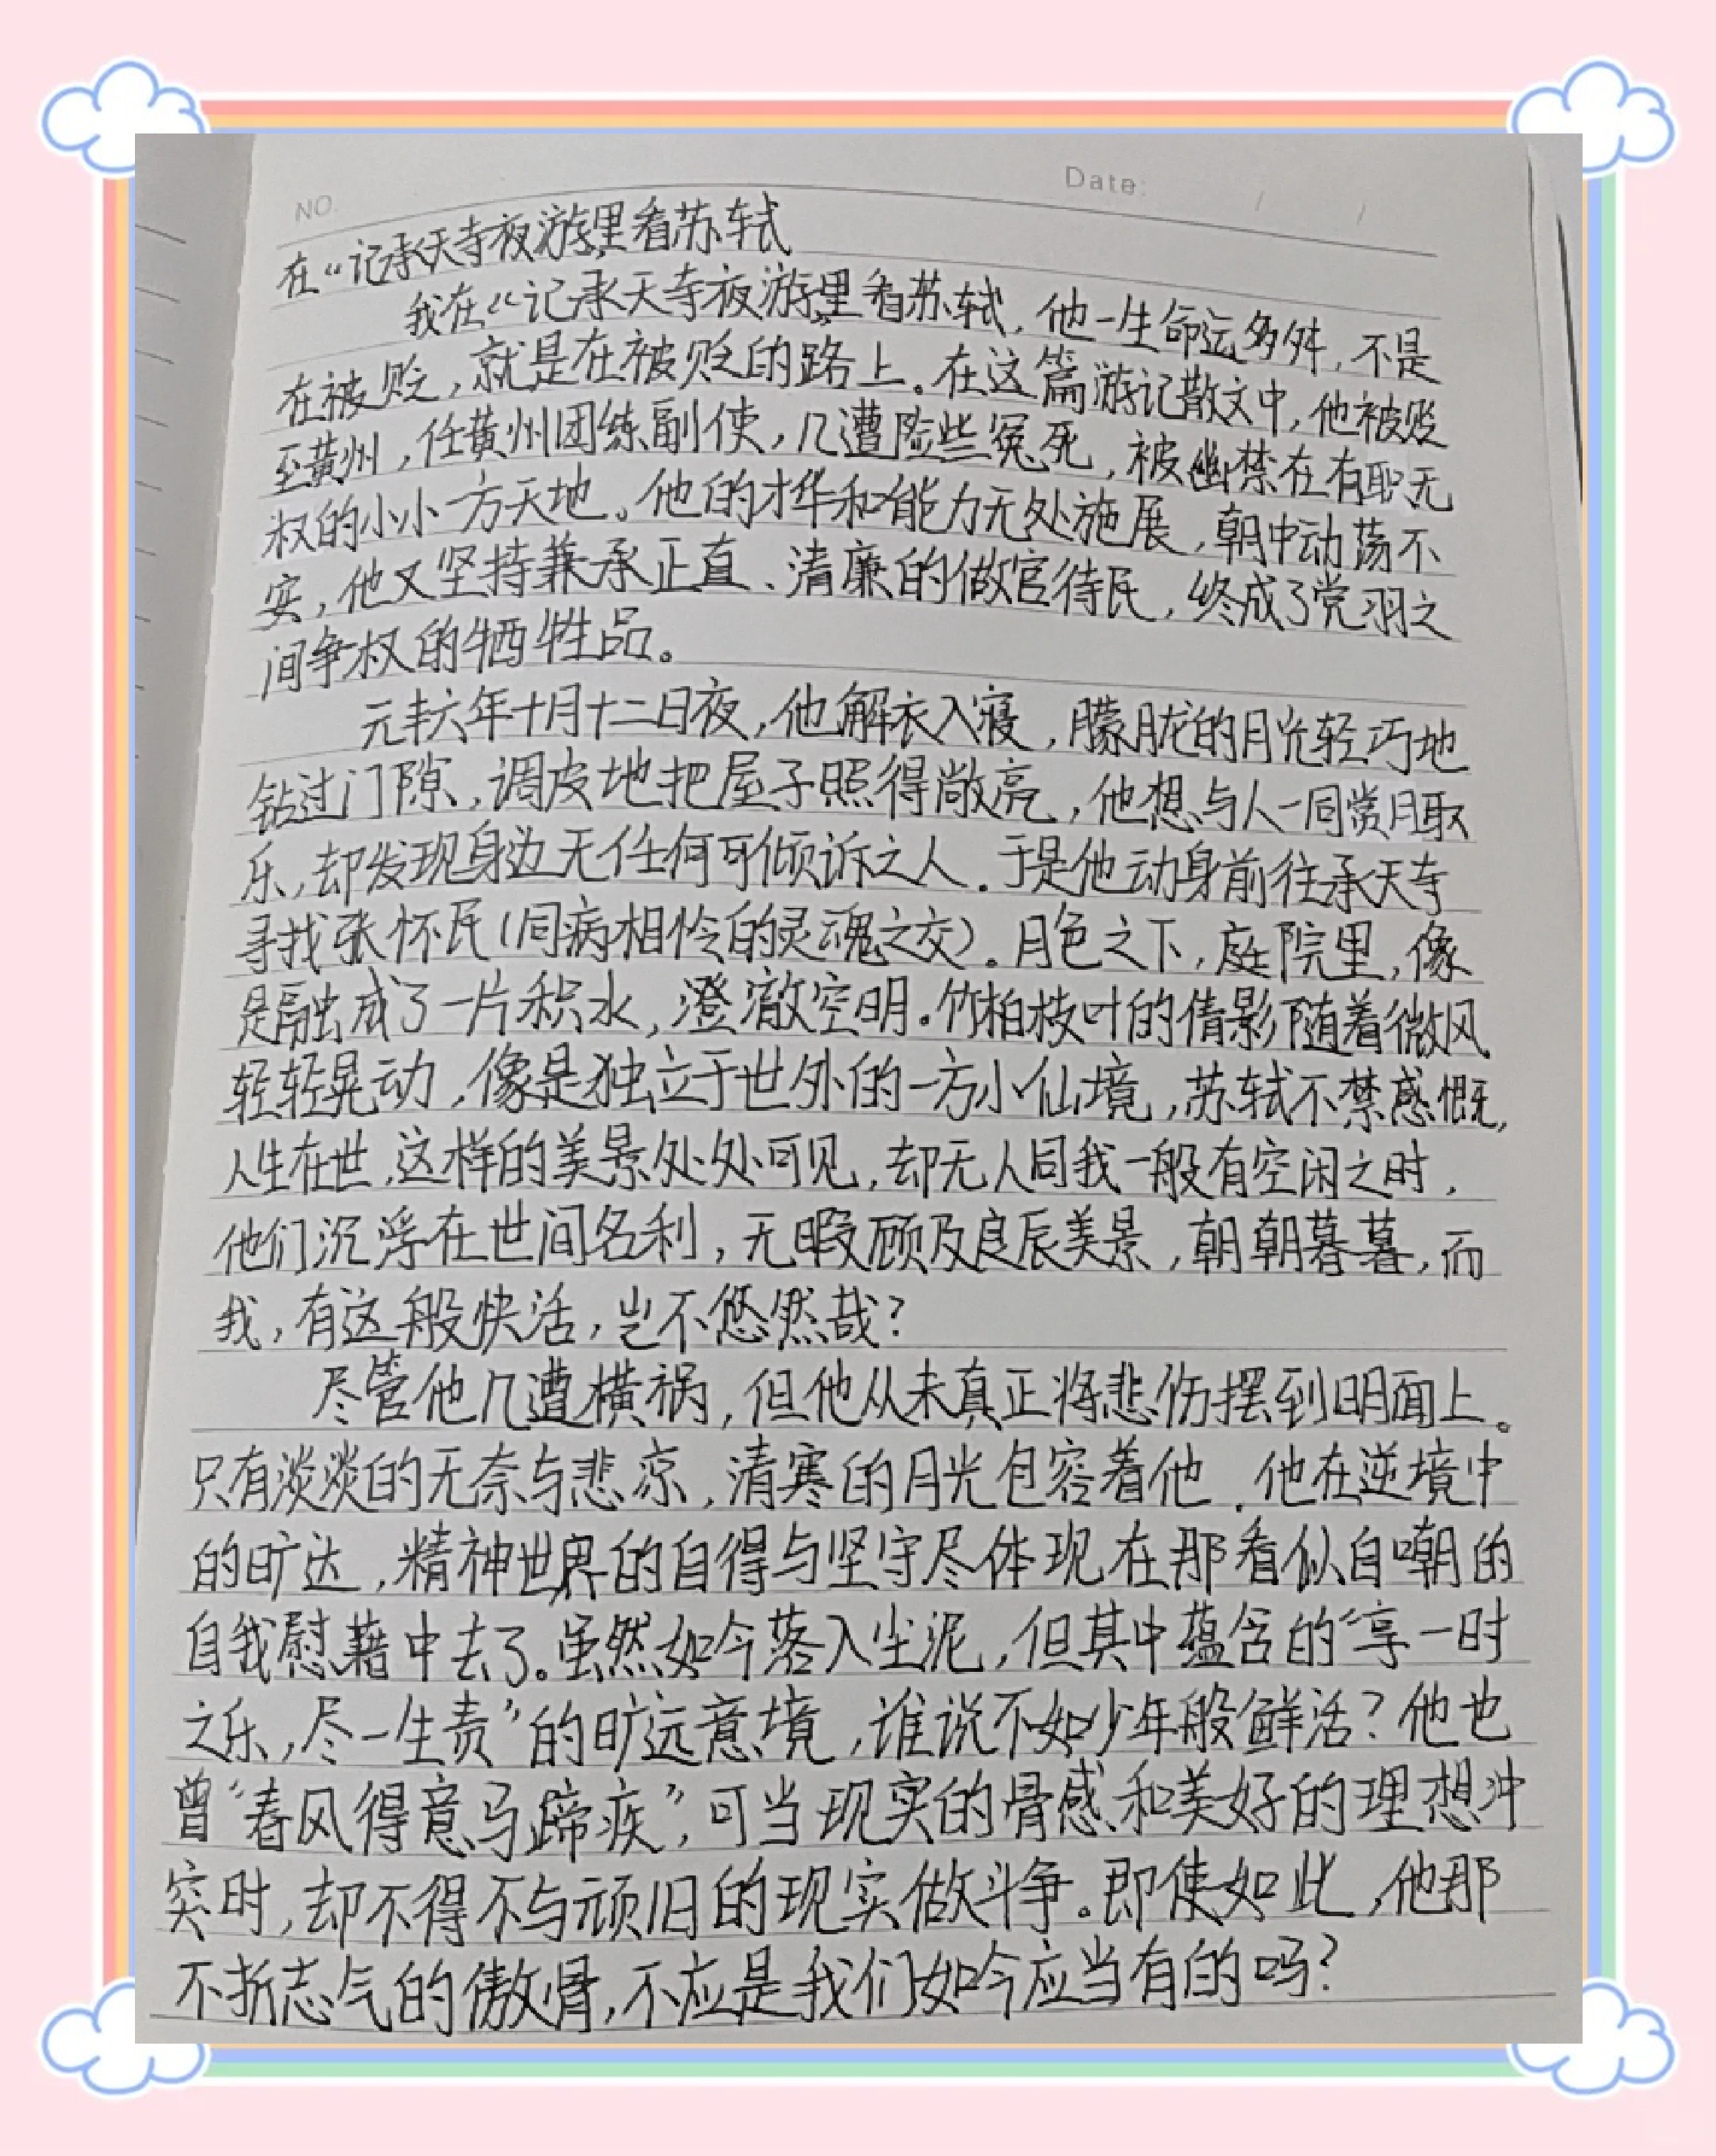 NO.
Date: / /
在“记承天寺夜游”里看苏轼
我在“记承天寺夜游”里看苏轼,他一生命运多舛,不是
在被贬,就是在被贬的路上。在这篇游记散文中,他被贬
至黄州,任黄州团练副使,几遭险些冤死,被幽禁在有职无
权的小小一方天地。他的才华和能力无处施展,朝中动荡不
安,他又坚持秉承正直、清廉的做官待民,终成了党羽之
间争权的牺牲品。
元丰六年十月十二日夜,他解衣入寝,朦胧的月光轻巧地
钻过门隙,调皮地把屋子照得敞亮,他想与人一同赏月取
乐,却发现身边无任何可倾诉之人.于是他动身前往承天寺
寻找张怀民(同病相怜的灵魂之交)。月色之下,庭院里,像
是融成了一片积水,澄澈空明。竹柏枝叶的倩影随着微风
轻轻晃动,像是独立于世外的一方小仙境,苏轼不禁感慨,
人生在世,这样的美景处处可见,却无人同我一般有空闲之时,
他们沉浮在世间名利,无暇顾及良辰美景,朝朝暮暮,而
我,有这般快活,岂不悠然哉?
尽管他几遭横祸,但他从未真正将悲伤摆到明面上。
只有淡淡的无奈与悲凉,清寒的月光包容着他.他在逆境中
的旷达,精神世界的自得与坚守尽体现在那看似自嘲的
自我慰藉中去了。虽然如今落入尘泥,但其中蕴含的“享一时
之乐,尽一生责”的旷远意境,谁说不如少年般鲜活?他也
曾“春风得意马蹄疾”,可当现实的骨感和美好的理想冲
突时,却不得不与顽旧的现实做斗争。即使如此,他那
不折志气的傲骨,不应是我们如今应当有的吗?